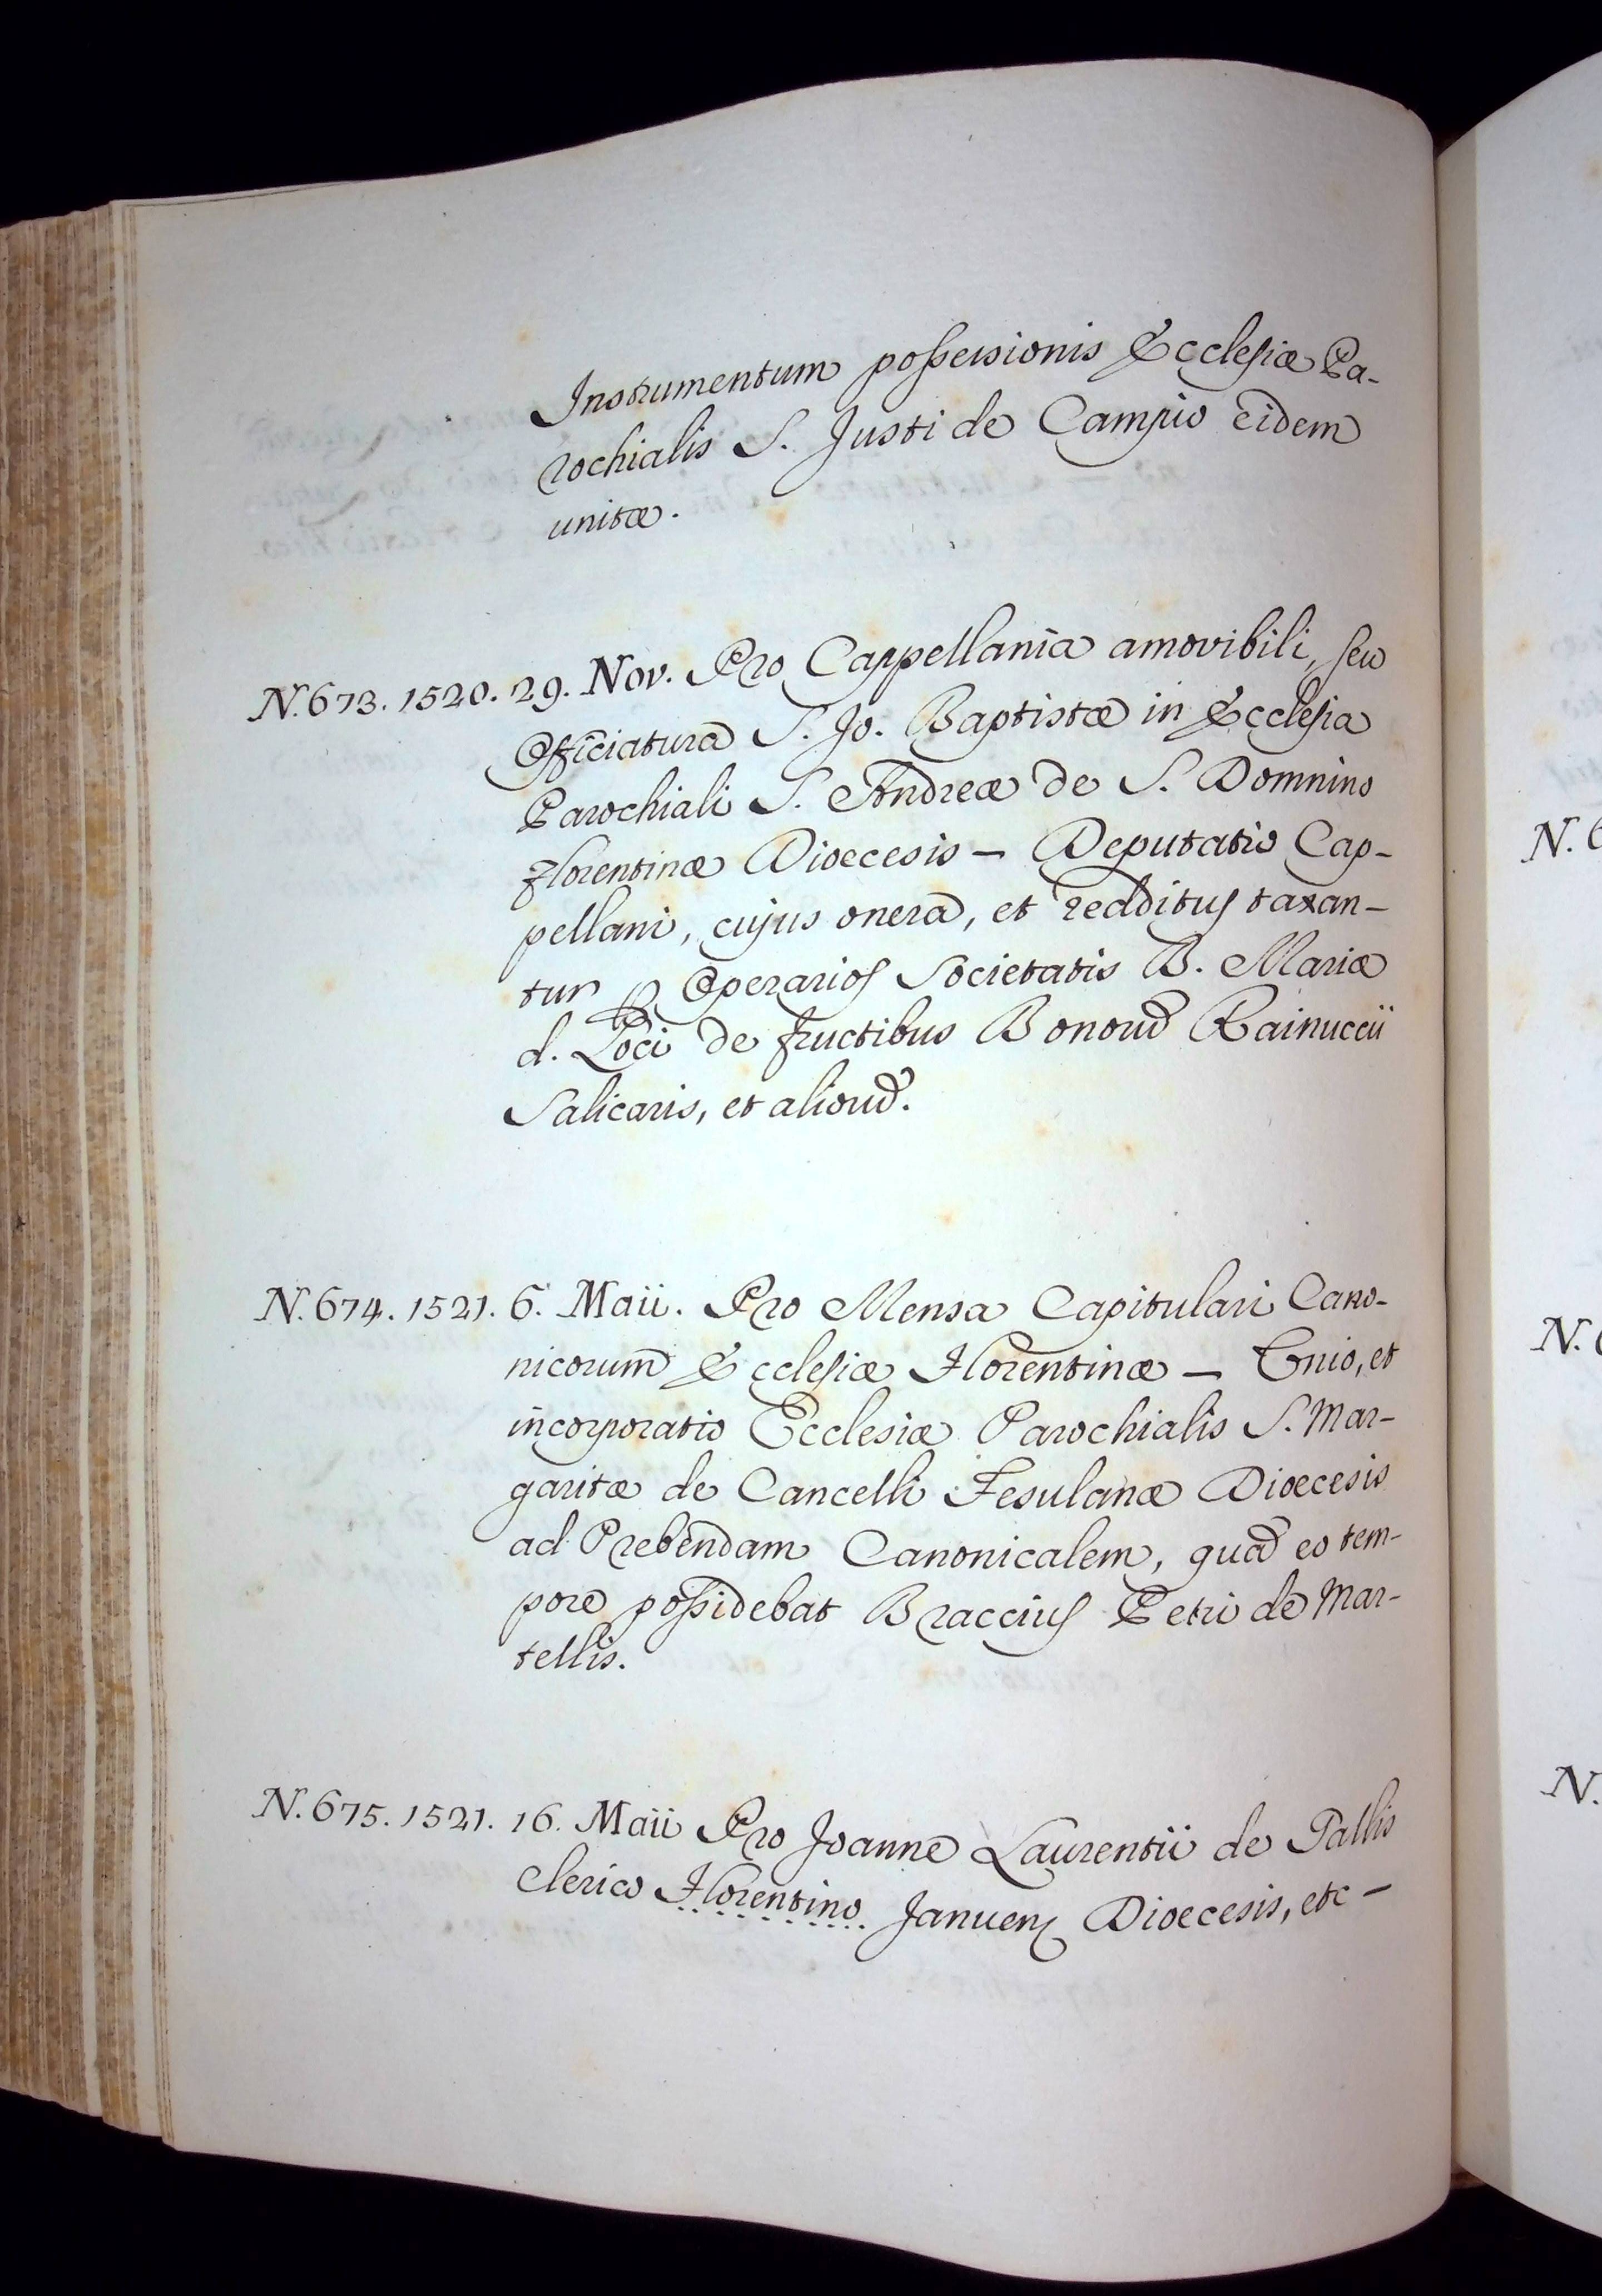 Instrumentum possessionis Ecclesiæ Pa-
rochialis S. Justi de Campio eidem
unitæ.
N. 673. 1520. 29. Nov. Pro Cappellania amovibili, seu
Officiatura S. Jo. Baptistæ in Ecclesia
Parochiali S. Andreæ de S. Domnino
Florentinæ Dioecesis — Deputatio Cap-
pellani, cujus onera, et redditus taxan-
tur p Operarios Societatis B. Mariæ
d. Loci de fructibus Bonorũ Rainuccii
Salicaris, et aliorũ.
N. 674. 1521. 6. Maii. Pro Mensa Capitulari Cano-
nicorum Ecclesiæ Florentinæ — Unio, et
incorporatio Ecclesiæ Parochialis S. Mar-
garitæ de Cancelli Fesulanæ Dioecesis
ad Prebendam Canonicalem, quã eo tem-
pore possidebat Braccius Petri de Mar-
tellis.
N. 675. 1521. 16. Maii Pro Joanne Laurentii de Pallis
Clerico Florentino Januen Dioecesis, etc —
N. 6
N. 6
N.